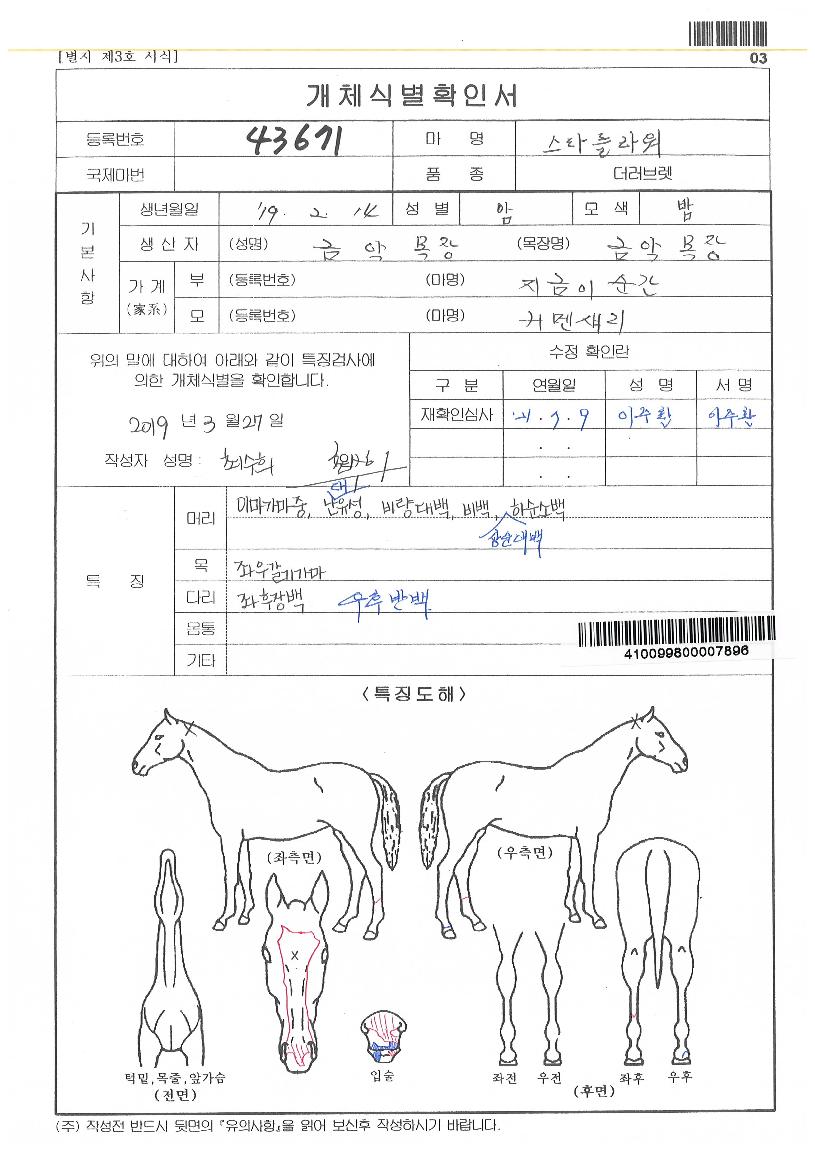 03
[별시 제3호 서식]
개체식별확인서
등록번호 43671 마 명 스타플라워
국제마번 품 종 더러브렛
기본사항
생년월일 '19. 2. 14 성 별 암 모 색 밤
생산자 (성명) 금악 목장 (목장명) 금악 목장
가계 (家系) 부 (등록번호) (마명) 지금이순간
모 (등록번호) (마명) 커멘섀리
위의 말에 대하여 아래와 같이 특징검사에
의한 개체식별을 확인합니다.
2019 년 3 월 27 일
작성자 성명 : 최수희
수정 확인란
구 분 연월일 성 명 서 명
재확인심사 '21. 7. 9 이주환 이주환
. .
. .
특 징
머리 이마가마중, 난유성, 비량대백, 비백, 하순소백
대
상순대백
목 좌우갈기가마
다리 좌후장백 우후반백
몸통
기타
410099800007896
<특징도해>
(좌측면) (우측면)
턱밑,목줄,앞가슴
(전면)
입술
좌전 우전 좌후 우후
(후면)
(주) 작성전 반드시 뒷면의 『유의사항』을 읽어 보신후 작성하시기 바랍니다.